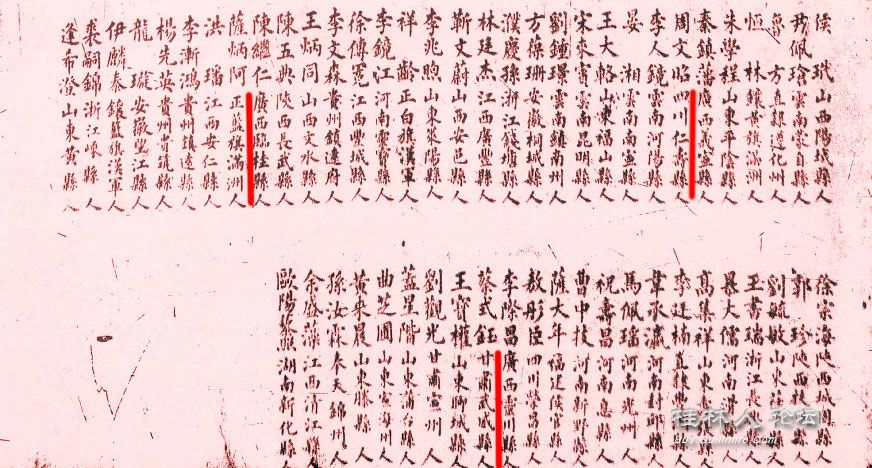 侯 山西陽城縣人
佩 雲南蒙自縣人
魯 方直隸遵化州人
恒 林鑲黃旗滿洲人
朱學程山東平陰縣人
秦鎮藩廣西義寧縣人
周文焰四川仁壽縣人
李人鏡雲南河陽縣人
晏 湘雲南南寧縣人
王大輅山東福山縣人
宋來賓雲南昆明縣人
劉鍾璟雲南鎮南州人
方葆珊安徽桐城縣人
濮慶孫浙江錢塘縣人
林廷杰江西廣豐縣人
靳文蔚山西安邑縣人
李兆煦山東萊陽縣人
祥 齡正白旗漢軍人
李鏡江河南靈寶縣人
徐傳冕江西豐城縣人
李文森貴州鎮遠府人
王炳同山西文水縣人
陳五典陝西長武縣人
陳繼仁廣西臨桂縣人
薩炳阿正藍旗滿洲人
洪 璠江西安仁縣人
李漸鴻貴州鎮遠縣人
楊先英貴州貴筑縣人
龍 琬安徽望江縣人
伊麟泰鑲藍旗漢軍人
裘嗣錦浙江嵊縣人
逄希澄山東黃縣人
徐宗海陝西城固縣人
郭 珍陝西 縣人
劉毓敏山東 縣人
王書瑞浙江長 人
晁大儒河南 人
高集祥山東 人
李廷楠直隸 人
韋承瀛河南封邱縣人
馬佩瑤河南光州人
祝壽昌河南息縣人
曹中枝河南 縣人
薩大年福建侯官縣人
敖彤臣四川榮昌縣人
李際昌廣西靈川縣人
蔡式鈺甘肅武威縣人
王寶權山東聊城縣人
劉觀光甘肅寧州人
藍星階山東蒲台縣人
曲芝圃山東寧海州人
黃來晨山東滕縣人
孫汝霖奉天錦州人
余盛藻江西清江縣人
歐陽 湖南新化縣人
桂林人 论坛
bbs.guilinlife.com